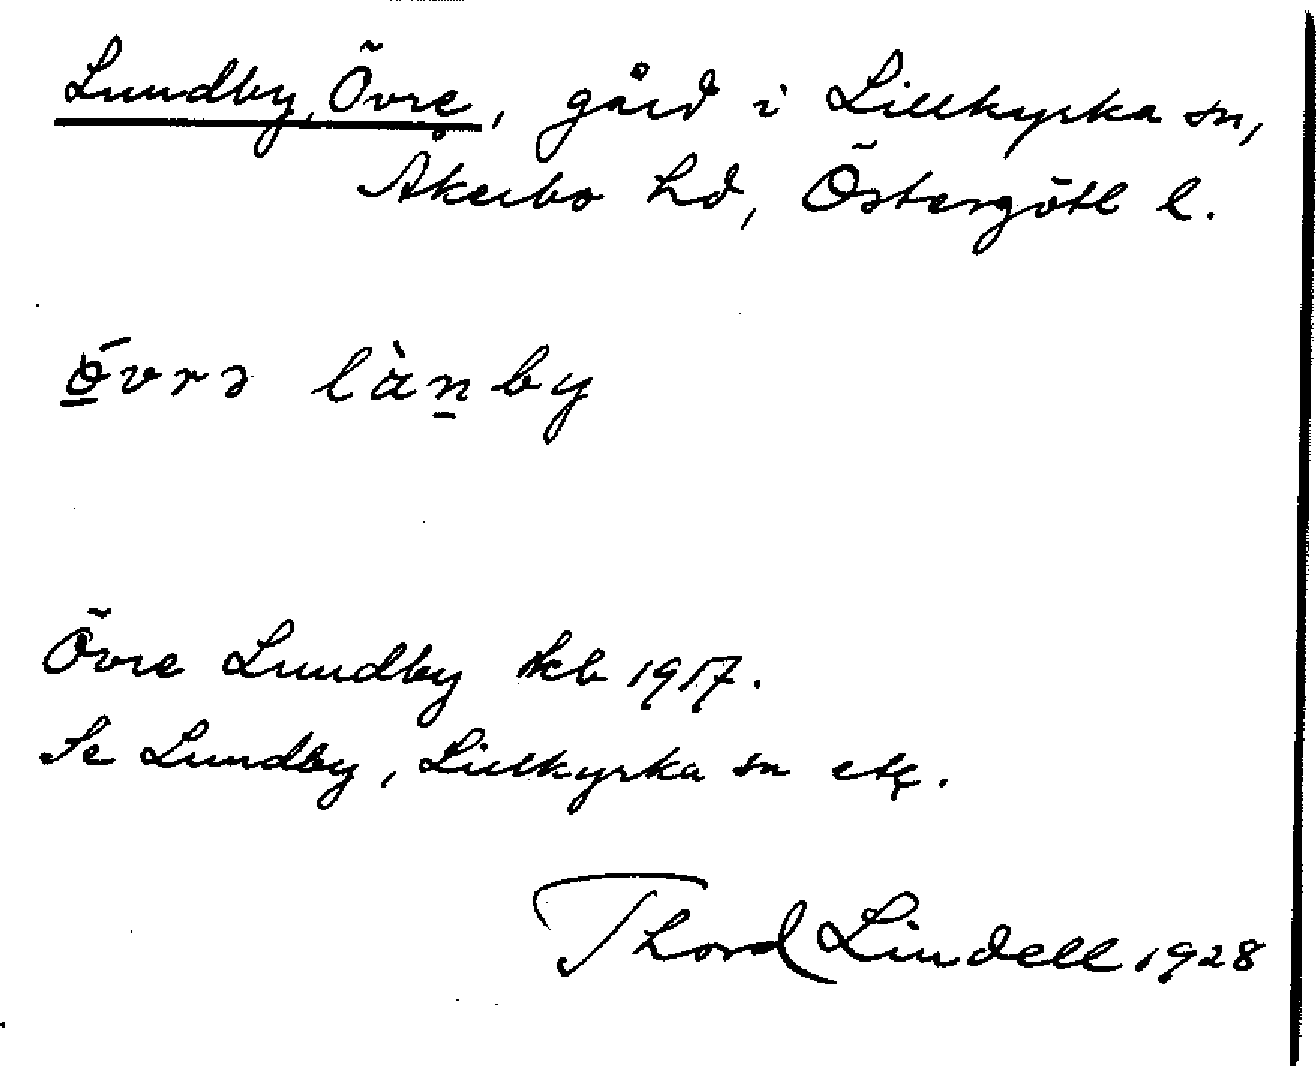 Lundby, Övre, gård i Lillkyrka sn,
Åkerbo hd, Östergötl l.
övrə lànby
Övre Lundby Jkb 1917.
Se Lundby, Lillkyrka sn etc.
Thord Lindell 1928